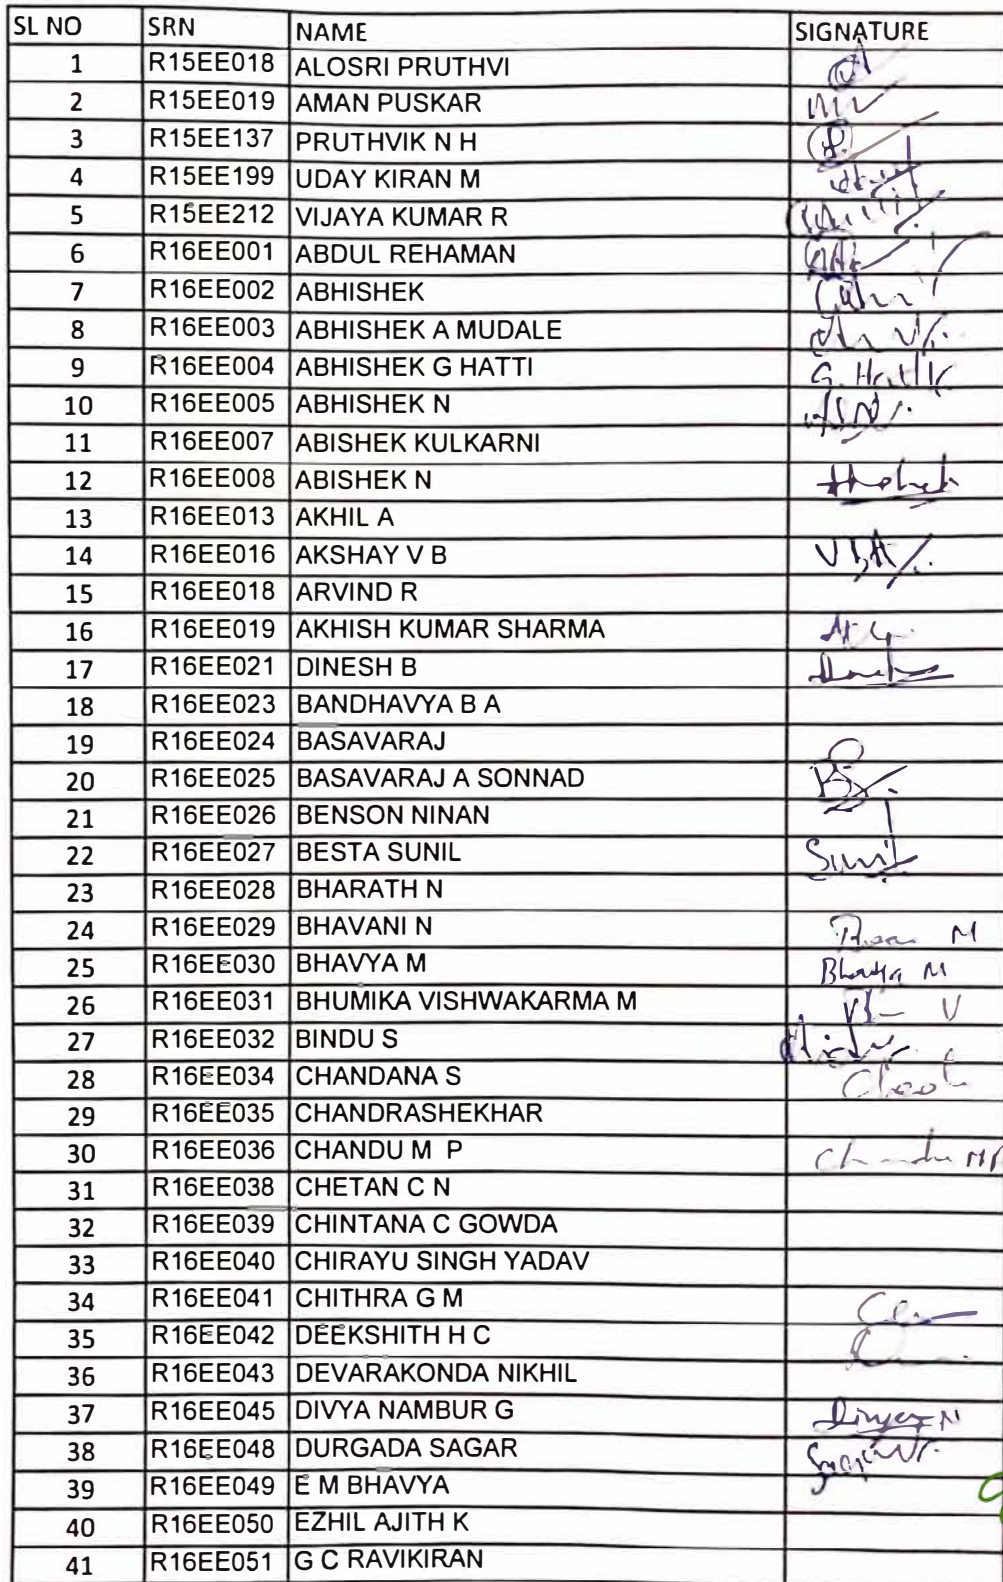 SL NO SRN NAME SIGNATURE
1 R15EE018 ALOSRI PRUTHVI
2 R15EE019 AMAN PUSKAR
3 R15EE137 PRUTHVIK N H
4 R15EE199 UDAY KIRAN M
5 R15EE212 VIJAYA KUMAR R
6 R16EE001 ABDUL REHAMAN
7 R16EE002 ABHISHEK
8 R16EE003 ABHISHEK A MUDALE
9 R16EE004 ABHISHEK G HATTI G. Hatti
10 R16EE005 ABHISHEK N
11 R16EE007 ABISHEK KULKARNI
12 R16EE008 ABISHEK N
13 R16EE013 AKHIL A
14 R16EE016 AKSHAY V B
15 R16EE018 ARVIND R
16 R16EE019 AKHISH KUMAR SHARMA
17 R16EE021 DINESH B
18 R16EE023 BANDHAVYA B A
19 R16EE024 BASAVARAJ
20 R16EE025 BASAVARAJ A SONNAD
21 R16EE026 BENSON NINAN
22 R16EE027 BESTA SUNIL Sunil
23 R16EE028 BHARATH N
24 R16EE029 BHAVANI N
25 R16EE030 BHAVYA M Bhavya M
26 R16EE031 BHUMIKA VISHWAKARMA M
27 R16EE032 BINDU S
28 R16EE034 CHANDANA S
29 R16EE035 CHANDRASHEKHAR
30 R16EE036 CHANDU M P Chandu MP
31 R16EE038 CHETAN C N
32 R16EE039 CHINTANA C GOWDA
33 R16EE040 CHIRAYU SINGH YADAV
34 R16EE041 CHITHRA G M
35 R16EE042 DEEKSHITH H C
36 R16EE043 DEVARAKONDA NIKHIL
37 R16EE045 DIVYA NAMBUR G Divya N
38 R16EE048 DURGADA SAGAR
39 R16EE049 E M BHAVYA
40 R16EE050 EZHIL AJITH K
41 R16EE051 G C RAVIKIRAN